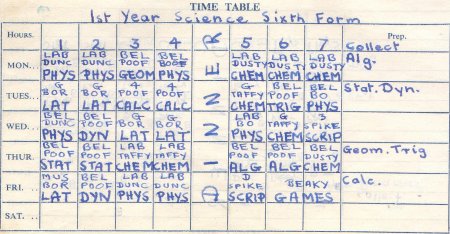 TIME TABLE
1st Year Science Sixth Form
HOURS. 1 2 3 4 R 5 6 7 Prep. Collect
LAB LAB BEL BEL LAB LAB LAB Alg.
MON... DUNC DUNC POOF BOOF E DUSTY DUSTY DUSTY
PHYS PHYS GEOM PHYS CHEM CHEM CHEM
G G 4 4 G BEL BEL Stat. Dyn.
TUES. BOR BOR POOF POOF N TAFFY POOF BO
LAT LAT CALC CALC CHEM TRIG PHYS
BEL BEL G G LAB G 3
WED. DUNC POOF BOR BOR N BO TAFFY SPIKE
PHYS DYN LAT LAT PHYS CHEM SCRIP
BEL BEL LAB LAB BEL BEL BEL Geom. Trig
THUR. POOF POOF TAFFY TAFFY I POOF POOF DUSTY
STAT STAT CHEM CHEM ALG ALG CHEM
MUS BEL LAB LAB D Calc.
FRI. BOR POOF DUNC DUNC D SPIKE BEAKY
LAT DYN PHYS PHYS SCRIP GAMES
SAT.